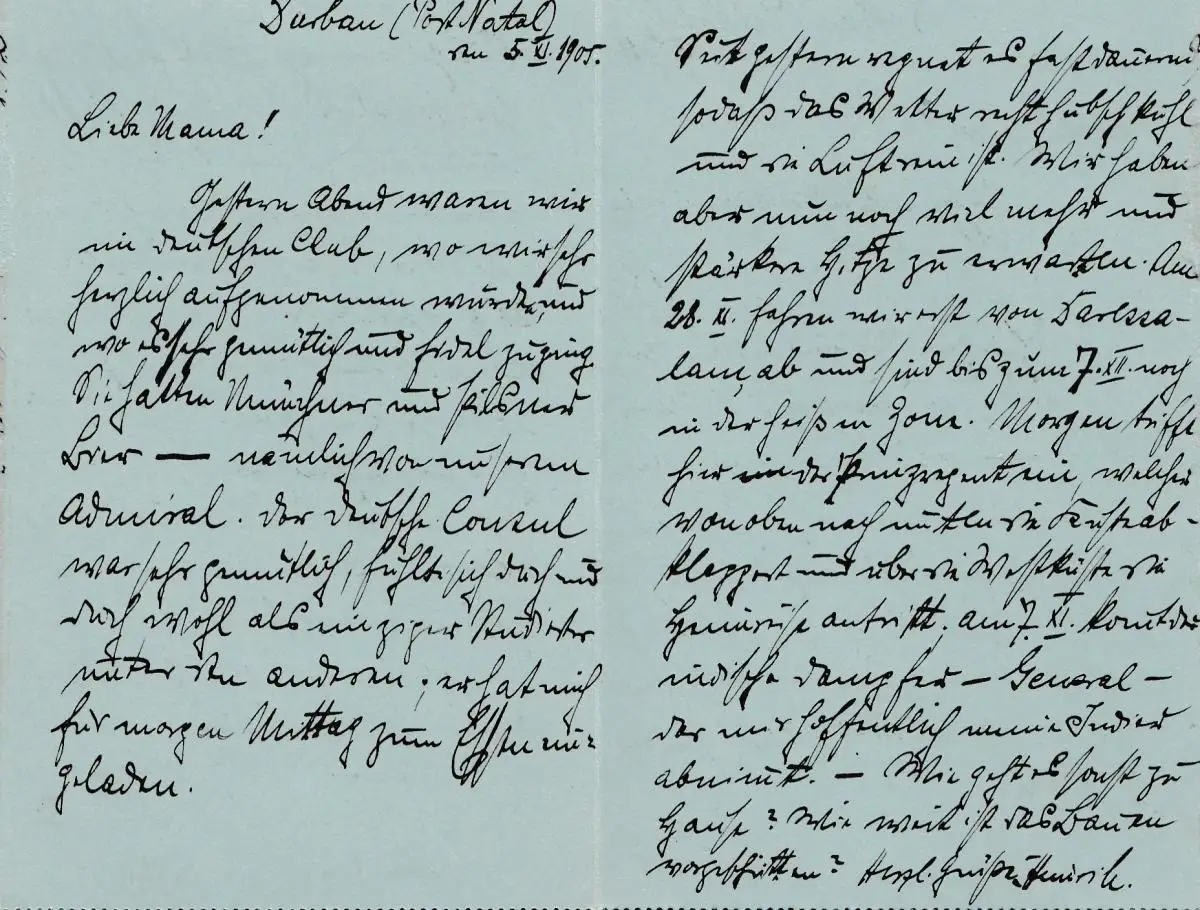 Durban (Port Natal)
den 5. XI. 1905.
Liebe Mama!
Gestern Abend waren wir
im deutschen Club, wo wir sehr
herzlich aufgenommen wurden und
wo es sehr gemütlich und fidel zuging.
Sie hatten Münchner und Pilsner
Bier — nämlich von unserem
Admiral. Der deutsche Consul
war sehr gemütlich, fühlte sich doch und
doch wohl als einziger Studierter
unter den anderen; er hat mich
für morgen Mittag zum Essen ein-
geladen.
Seit gestern regnet es fast dauernd
sodaß das Wetter recht hübsch kühl
und die Luft rein ist. Wir haben
aber nun noch viel mehr und
stärkere Hitze zu erwarten. Am
28. XI. fahren wir erst von Daressa-
lam ab und sind bis zum 7. XII. noch
in der heißen Zone. Morgen trifft
hier der Prinzregent ein, welcher
von oben nach unten die Küste ab-
kleppert und über die Westküste die
Heimreise antritt. Am 7. XI. komt der
indische Dampfer — General —
der mir hoffentlich meine Indier
abnimt. — Wie geht es sonst zu
Hause? Wie weit ist das Bauen
vorgeschritten? Herzl. Grüße Heinrich.